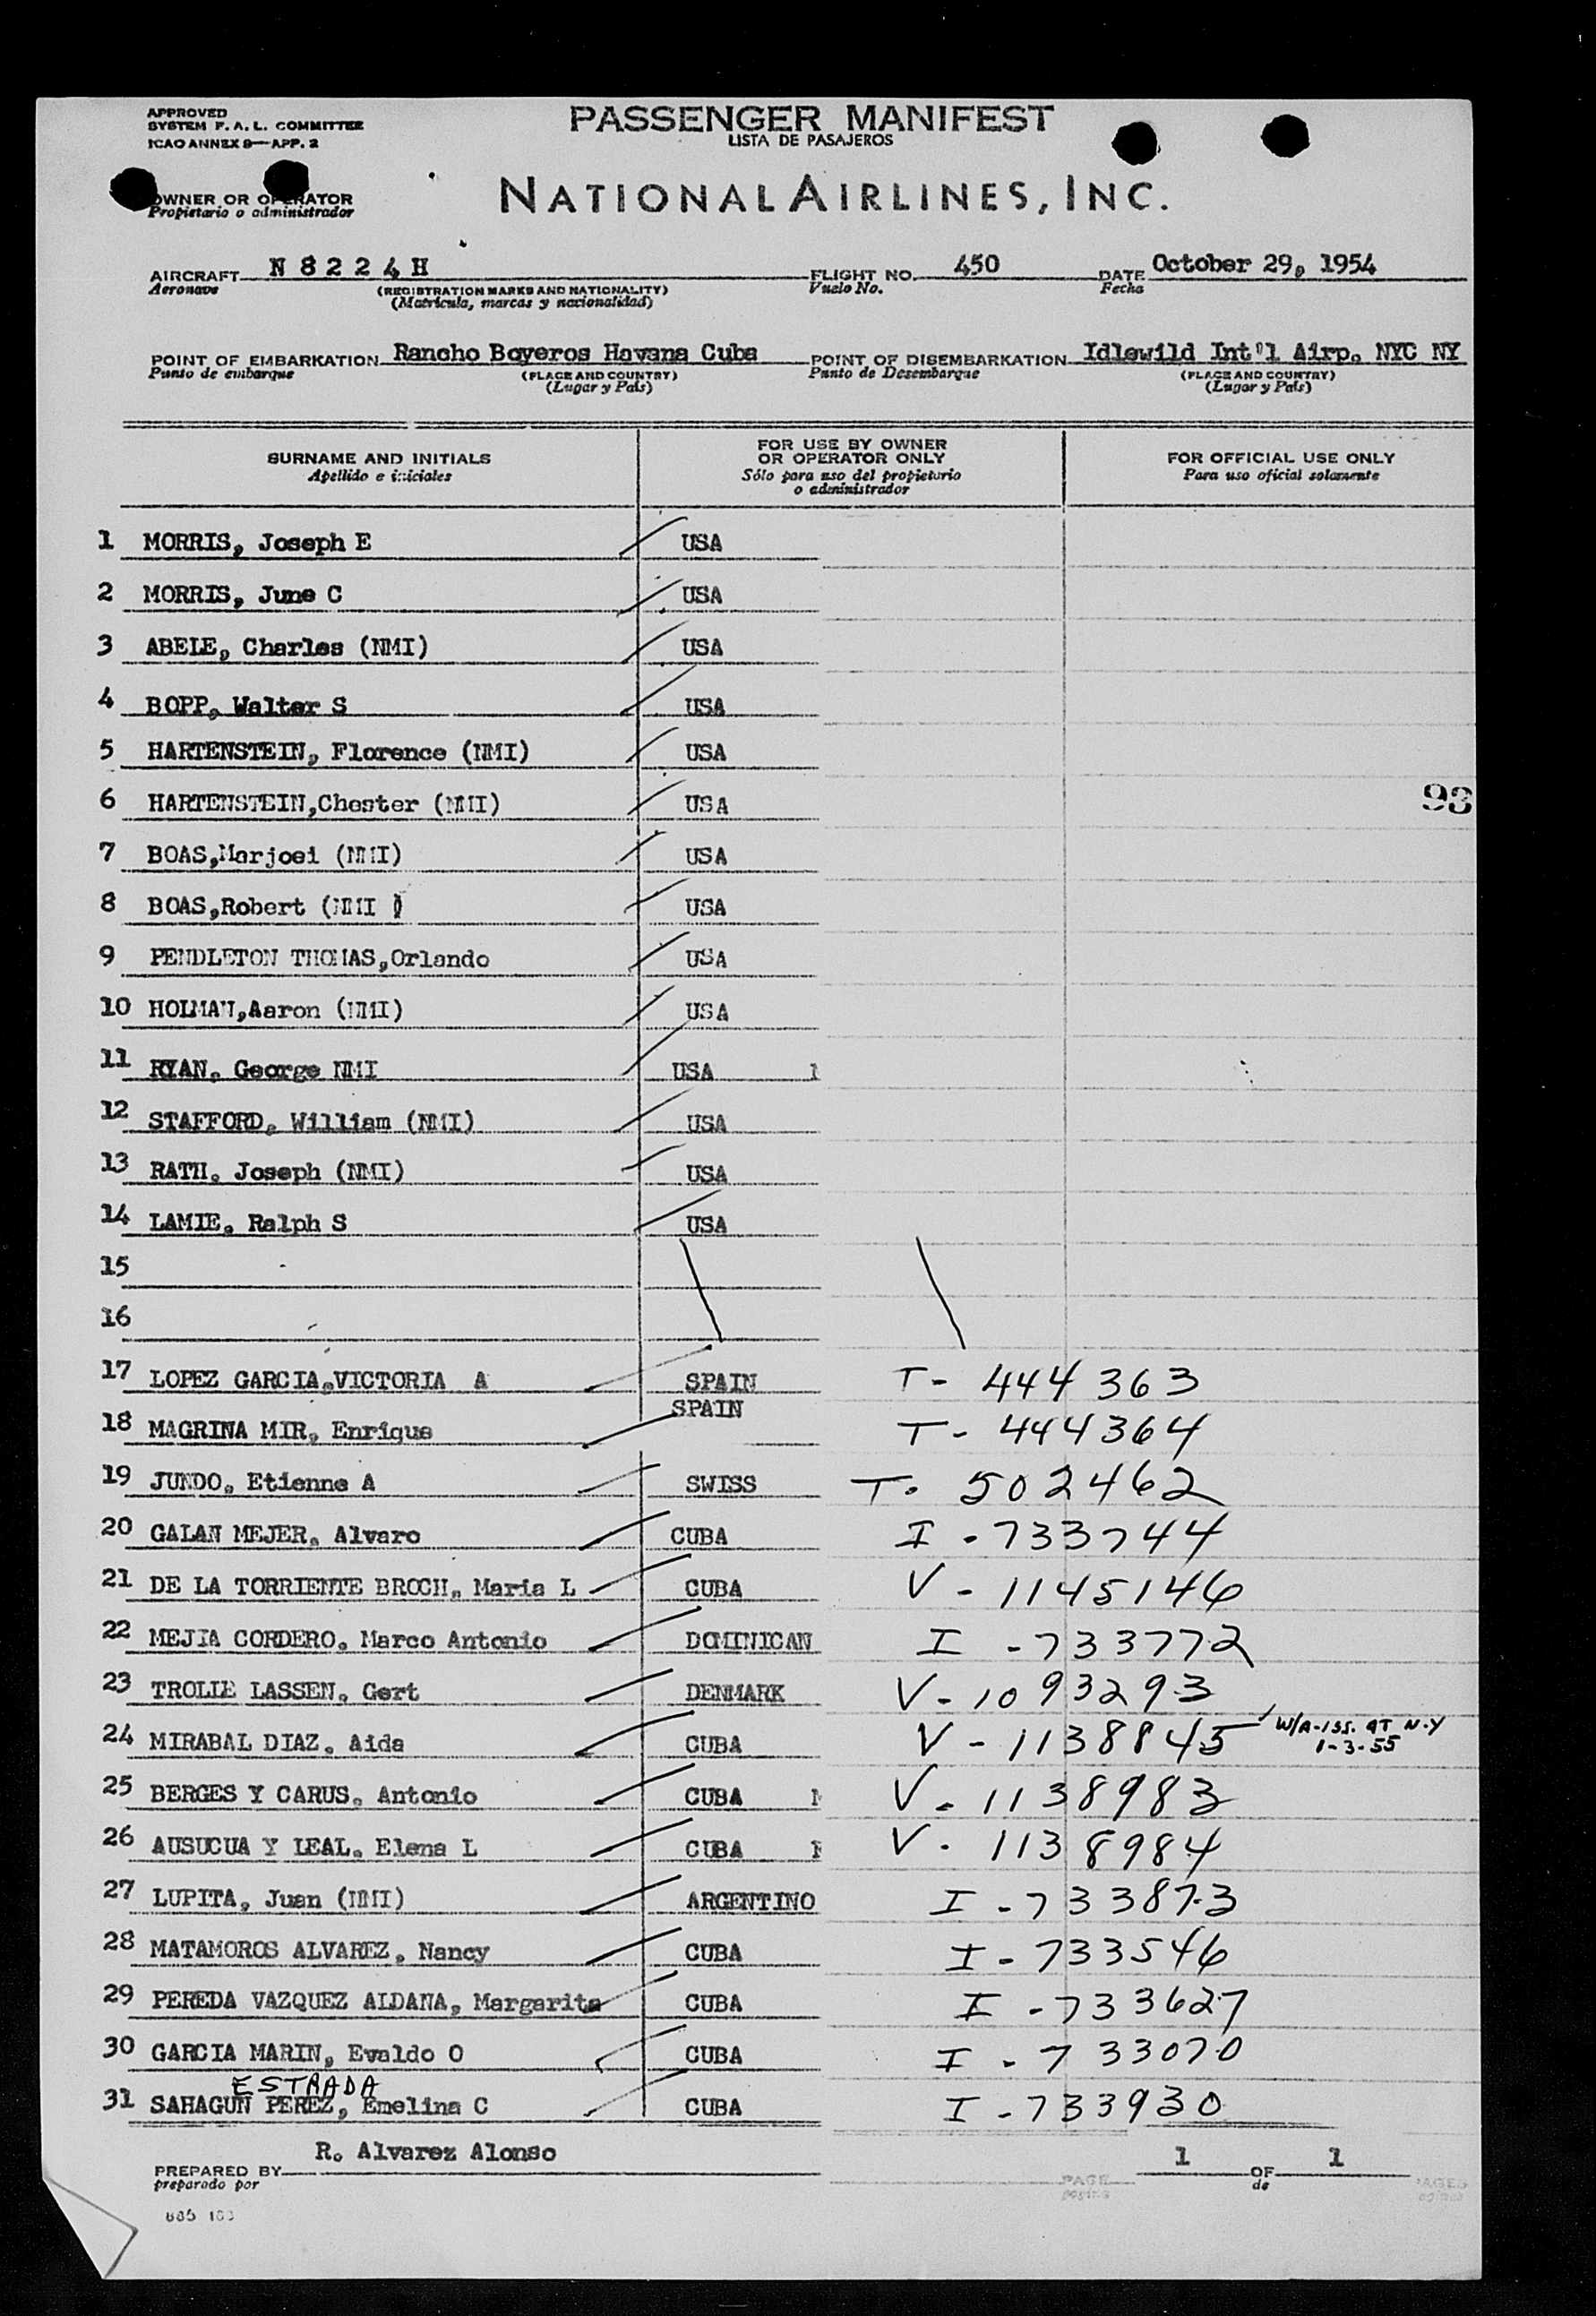 APPROVED
SYSTEM F. A. L. COMMITTEE
ICAO ANNEX 9—APP. 2
PASSENGER MANIFEST
LISTA DE PASAJEROS
OWNER OR OPERATOR
Propietario o administrador
NATIONAL AIRLINES, INC.
AIRCRAFT N 8 2 2 4 H FLIGHT NO. 450 DATE October 29, 1954
Aeronave (REGISTRATION MARKS AND NATIONALITY) Vuelo No. Fecha
(Matricula, marcas y nacionalidad)
POINT OF EMBARKATION Rancho Boyeros Havana Cuba POINT OF DISEMBARKATION Idlewild Int'l Airp. NYC NY
Punto de embarque (PLACE AND COUNTRY) Punto de Desembarque (PLACE AND COUNTRY)
(Lugar y País) (Lugar y País)
SURNAME AND INITIALS
Apellido e iniciales
FOR USE BY OWNER
OR OPERATOR ONLY
Sólo para uso del propietario
o administrador
FOR OFFICIAL USE ONLY
Para uso oficial solamente
1 MORRIS, Joseph E USA
2 MORRIS, June C USA
3 ABELE, Charles (NMI) USA
4 BOPP, Walter S USA
5 HARTENSTEIN, Florence (NMI) USA
6 HARTENSTEIN,Chester (NMI) USA 93
7 BOAS,Marjoei (NMI) USA
8 BOAS,Robert (NMI ) USA
9 PENDLETON THOMAS,Orlando USA
10 HOLMAN,Aaron (NMI) USA
11 RYAN, George NMI USA
12 STAFFORD, William (NMI) USA
13 RATH. Joseph (NMI) USA
14 LAMIE. Ralph S USA
15
16
17 LOPEZ GARCIA,VICTORIA A SPAIN T- 444 363
18 MAGRINA MIR, Enrique SPAIN T- 444364
19 JUNDO, Etienne A SWISS T. 502462
20 GALAN MEJER, Alvaro CUBA I -733744
21 DE LA TORRIENTE BROCH, Maria L CUBA V - 1145146
22 MEJIA CORDERO. Marco Antonio DOMINICAN I -733772
23 TROLLE LASSEN. Gert DENMARK V-1093293
24 MIRABAL DIAZ. Aida CUBA V - 1138845 W/A-ISS. AT N-Y
1-3-55
25 BERGES Y CARUS. Antonio CUBA V-1138983
26 AUSUCUA Y LEAL. Elena L CUBA V-1138984
27 LUPITA, Juan (NMI) ARGENTINO I -733873
28 MATAMOROS ALVAREZ, Nancy CUBA I -733546
29 PEREDA VAZQUEZ ALDANA, Margarita CUBA I -733627
30 GARCIA MARIN, Evaldo O CUBA I - 733070
ESTRADA
31 SAHAGUN PEREZ, Emelina C CUBA I -733930
PREPARED BY R. Alvarez Alonso PAGE 1 OF 1
preparado por de